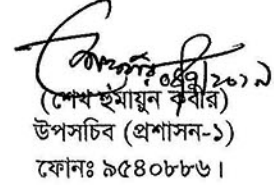 (শেখ হুমায়ুন কবীর)
উপসচিব (প্রশাসন-১)
ফোনঃ ৯৫৪০৮৮৬।